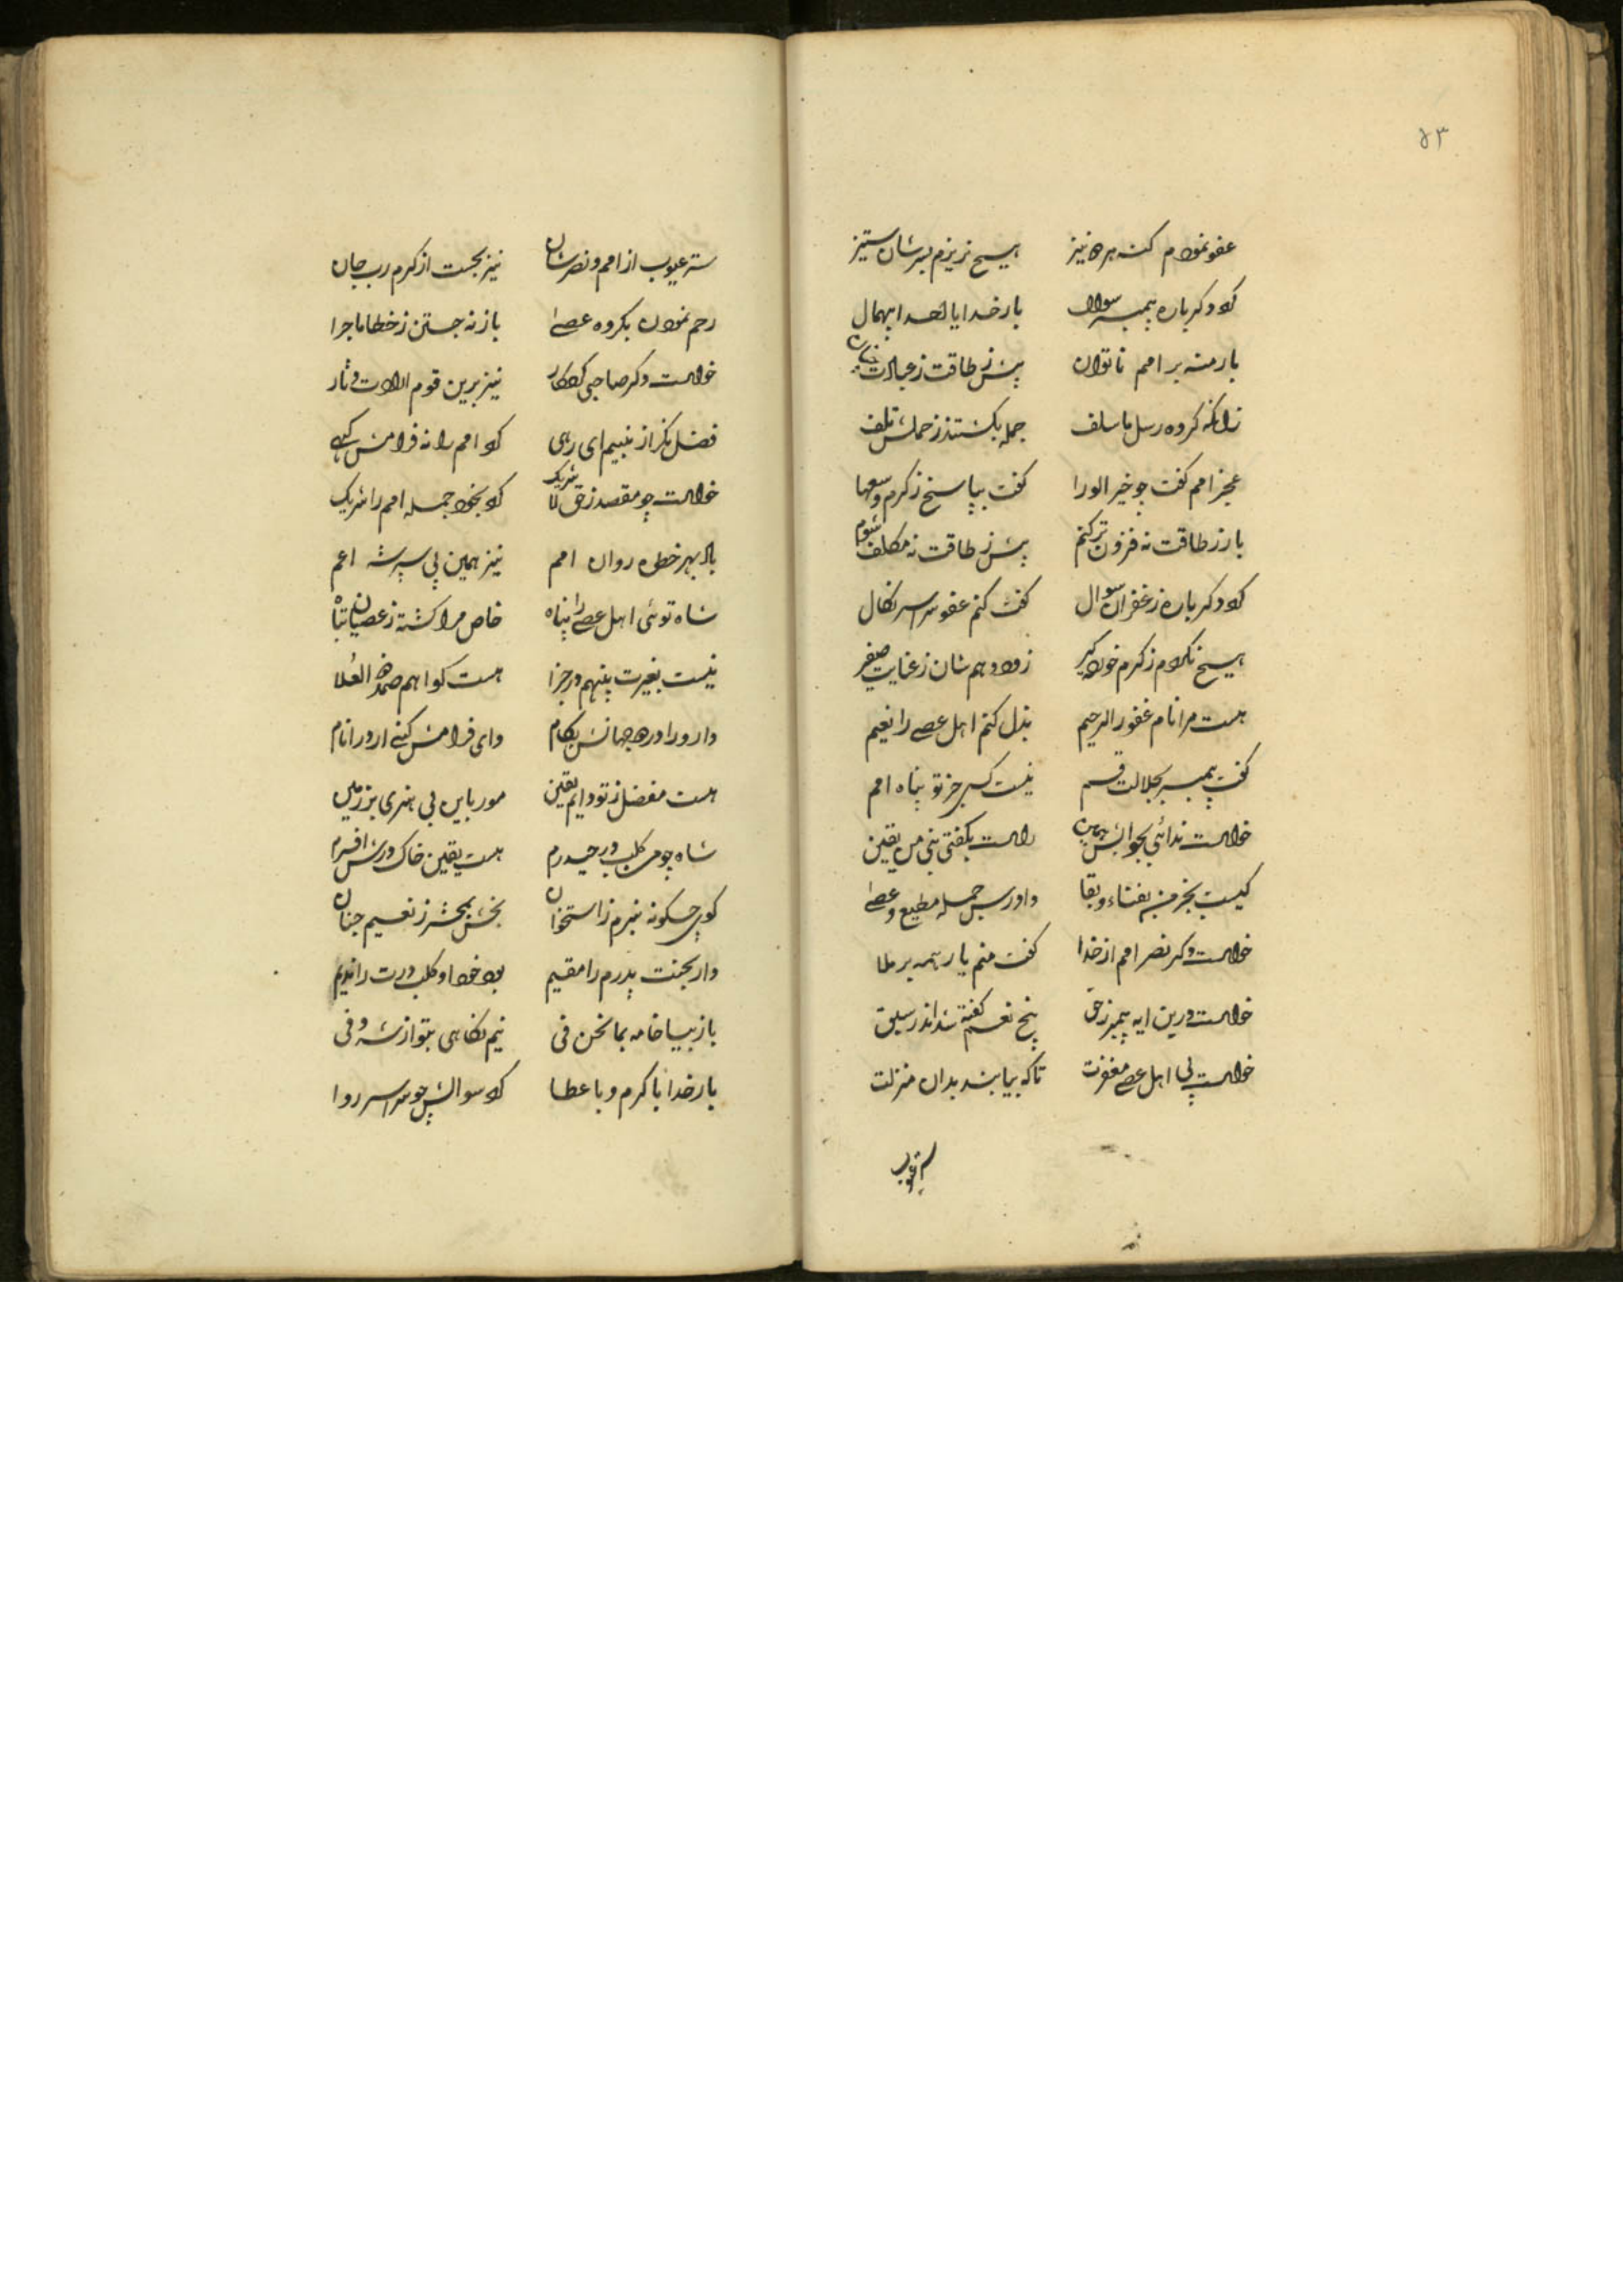 ۵۳
عفو نمودم کنه هره نیز هیچ نریزم بسرشان ستیز
کرد دکر باره پیمبر سوال بار خدایا احدا بیهمال
بار منه بر امم ناتوان بیش ز طاقت ز عبادت
زانکه کروه رسل ما سلف جمله بکشتند ز حملش تلف
عجز امم کفت چو خیر الورا کفت بپاسخ ز کرم وسعها
بار ز طاقت نه فزون تر کنم بیش ز طاقت نه مکلف شوم
کرد دکر باره ز غفران سوال کفت کنم عفو سراسر نکال
هیچ نکردم ز کرم خود کبیر زود دهم شان ز عنایت صغیر
هست مرا نام غفور الرحیم بذل کنم اهل عصی را نعیم
کفت پیمبر بجلالت قسم نیست کسی جز تو پناه امم
خواست ندائی بجوابش راست بکفتی نبی من یقین
کیست بجز من بفناء و بقا داورس جمله مطیع و عصی
خواست دکر نصر امم از خدا کفت منم یار همه بر ملا
خواست درین ایه پیمبر ز حق پنج نعم کفته شد اندر سبق
خواست پی اهل عصی مغفرت تا که بیابند بدان منزلت
ستر عیوب
ستر عیوب از امم و نصرشان نیز بجست از کرم رب جان
رحم نمودن بکروه عصی باز نه جستن ز خطا ماجرا
خواست دکر صاحبی کردکار نیز برین قوم ارادت دثار
فضل نکر از نبیم ای رهی کو امم را نه فرامش کهی
خواست چو مقصد ز حق لا شریک کرد بخود جمله امم را شریک
باد بهر خطه روان امم نیز همین پی سپرشه اعم
شاه توئی اهل عصی را پناه خاص مرا کشته ز عصیان تباه
نیست بغیرت پنهم در جزا هست کوا هم صمد ذو العلا
دار ورا در دو جهانش بکام وای فرامش کنی ار ور انام
هست مفضل ز تو دایم یقین مور باین بی هنری بر زمین
شاه چو من کلب در حیدرم هست یقین خاک درش افسرم
کوی چکونه نبرم ز استخوان بخش بمحشر ز نعیم جنان
دار بجنت پدرم را مقیم بود خود او کلب درت را ندیم
باز بیا خامه بما نحن فی نیم نکاهی بتو از شه وفی
بار خدا با کرم و با عطا کرد سوالش چو سراسر روا